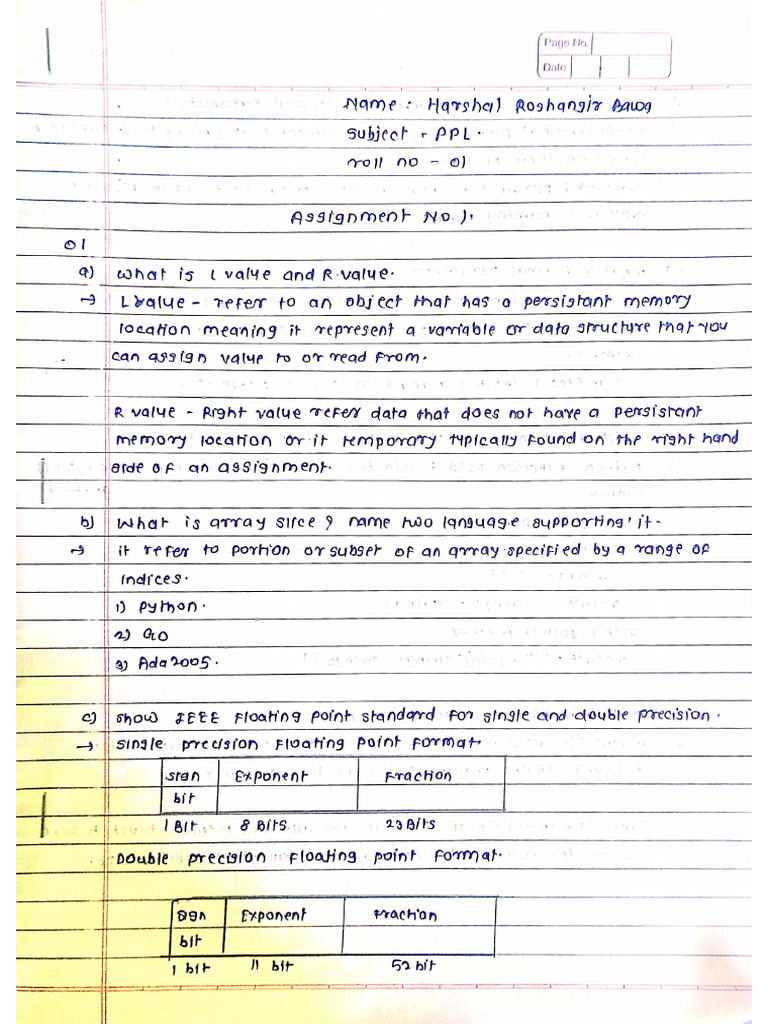 Page No.
Date
Name : Harshal Roshangir
Subject - PPL.
roll no - 01
Assignment No 1.
01
a) What is L value and R value.
→ L value - refer to an object that has a persistant memory
location meaning it represent a variable or data structure that you
can assign value to or read from.
R value - Right value refer data that does not have a persistant
memory location or it temporary typically found on the right hand
side of an assignment.
b) What is array slice? name two language supporting it-
→ it refer to portion or subset of an array specified by a range of
indices.
1) python.
2) GO
3) Ada2005.
c) show IEEE floating point standard for single and double precision.
→ single precision floating point format.
sign Exponent Fraction
bit
1 Bit 8 Bits 23 Bits
Double precision floating point format.
sign Exponent Fraction
bit
1 bit 11 bit 52 bit